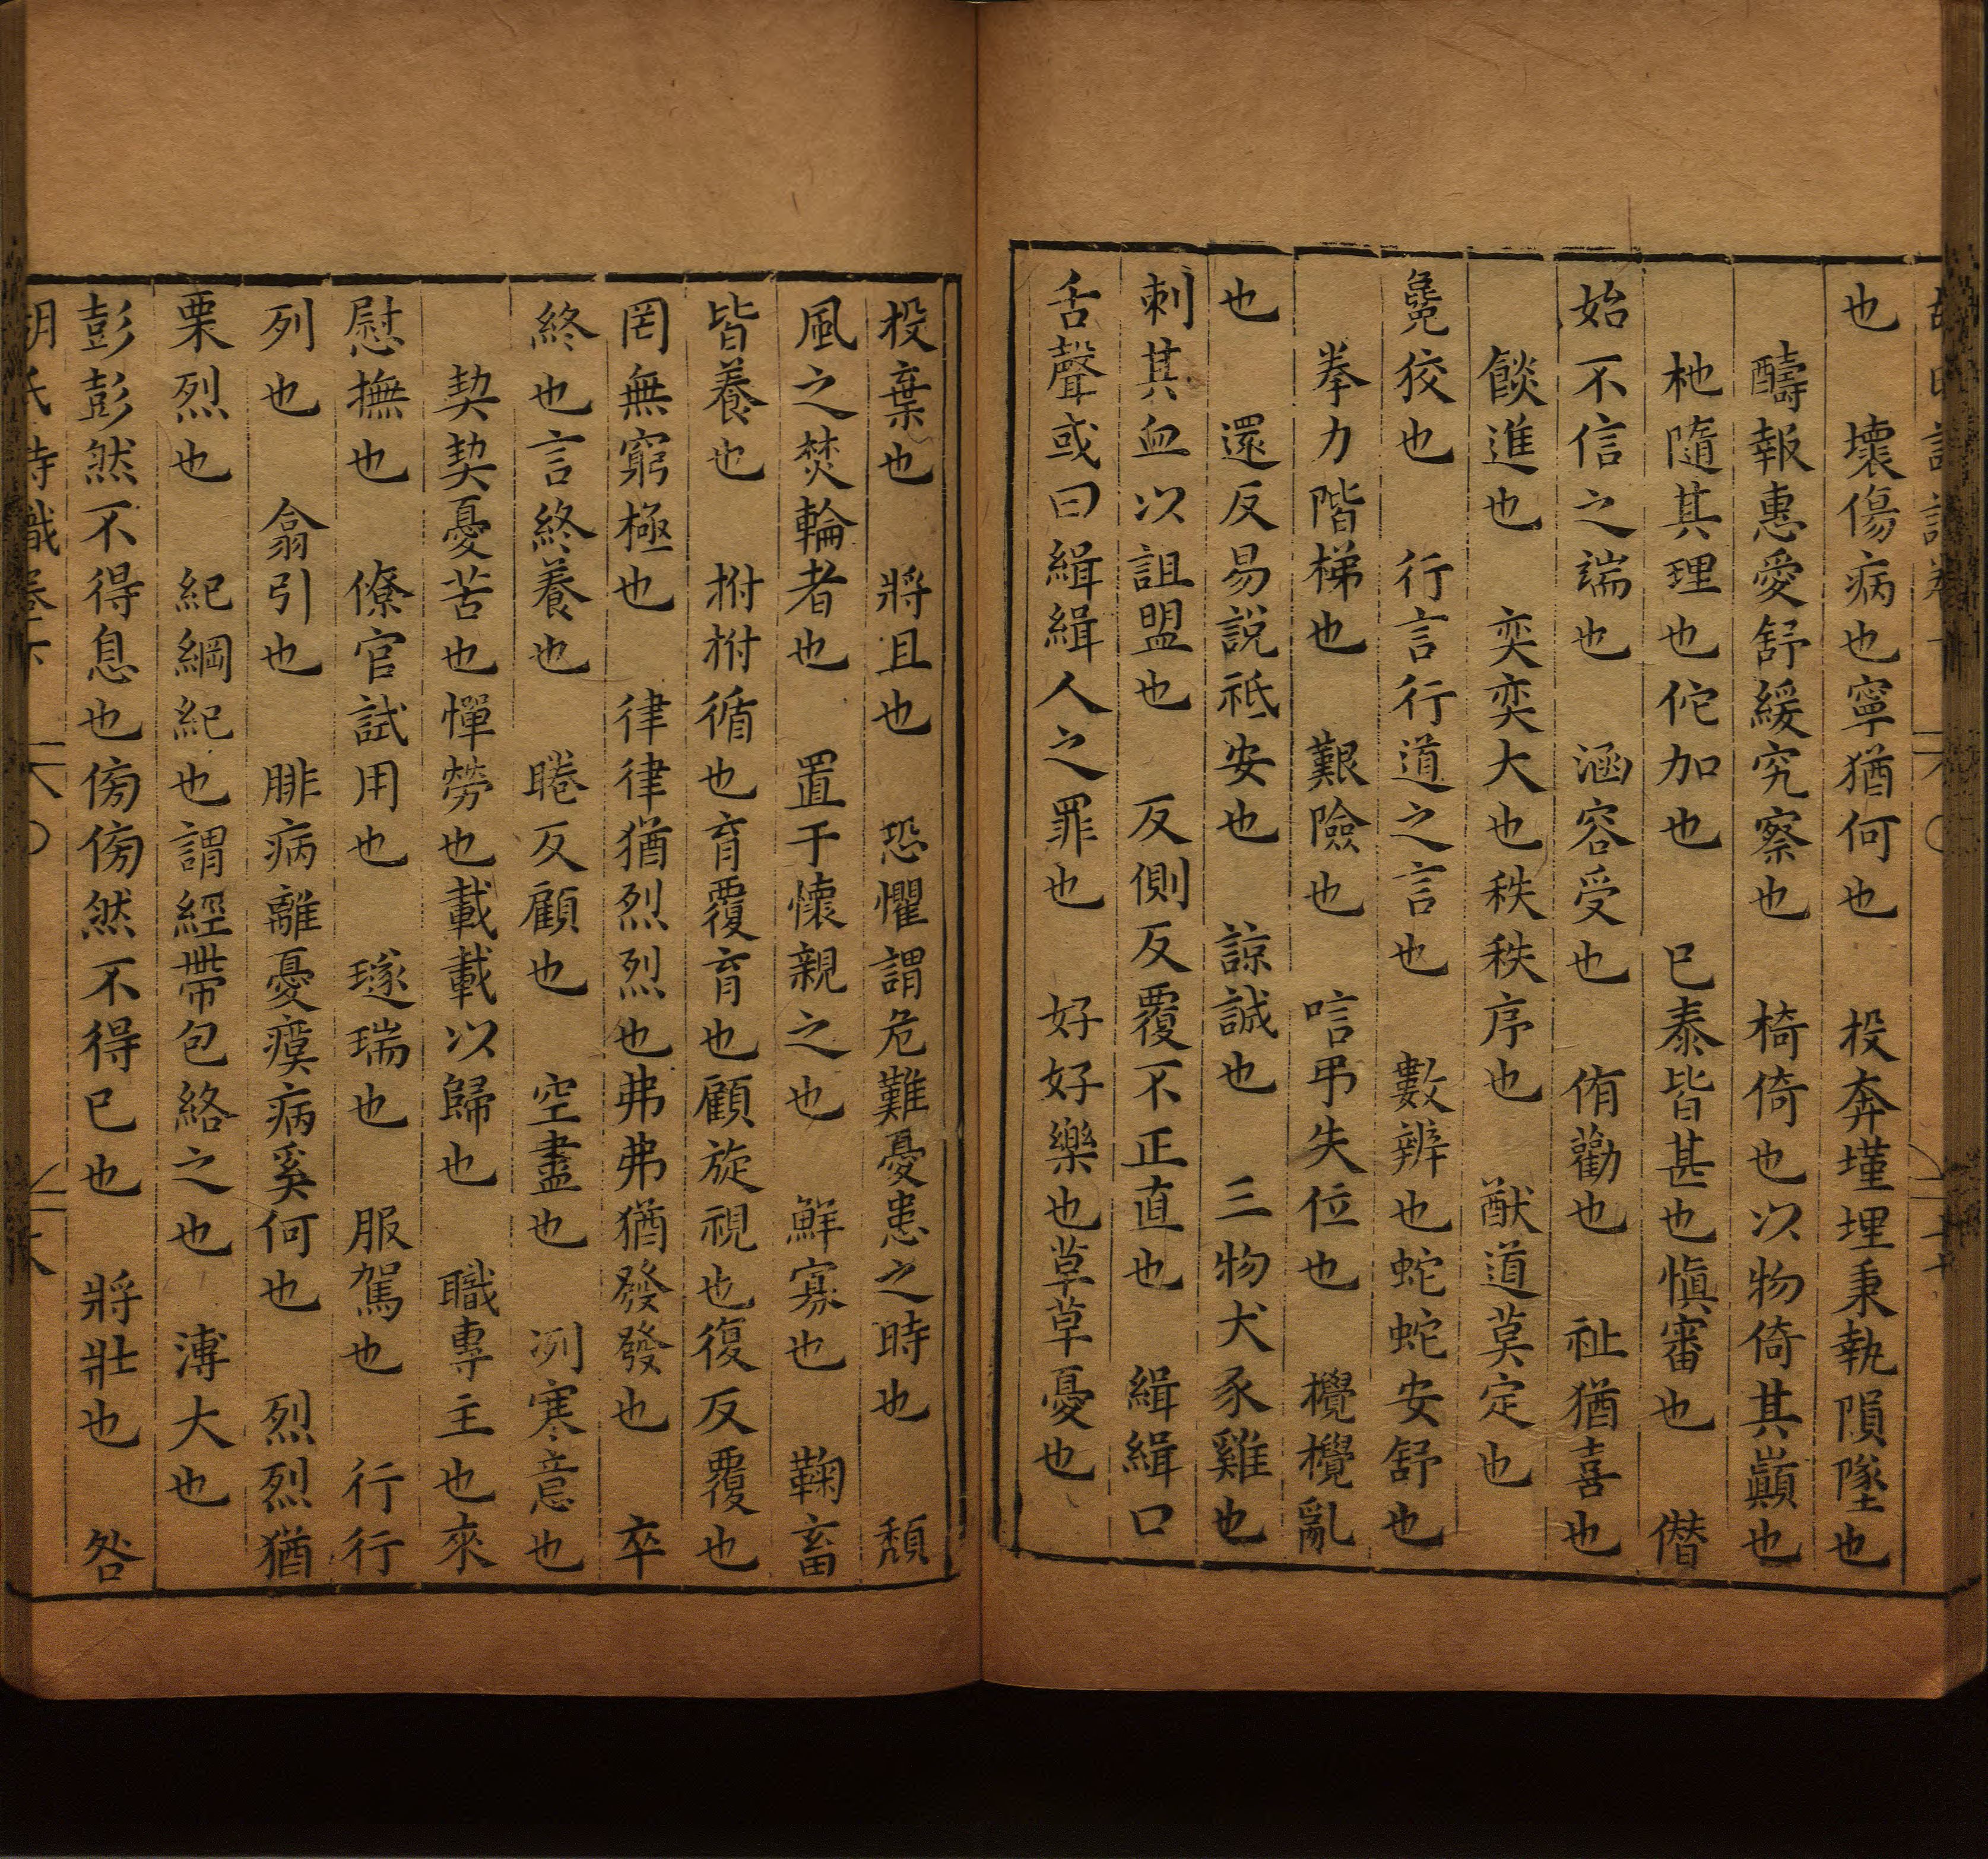 也　壞傷病也寧猶何也　投奔墐埋秉執隕墜也
醻報惠愛舒緩究察也　椅倚也以物倚其巔也
杝隨其理也佗加也　已泰皆甚也愼審也　僣
始不信之端也　涵容受也　侑勸也　祉猶喜也
餤進也　奕奕大也秩秩序也　猷道莫定也
毚狡也　行言行道之言也　數辨也蛇蛇安舒也
拳力階梯也　艱險也　唁弔失位也　攪攪亂
也　還反易說祇安也　諒誠也　三物犬豕雞也
刺其血以詛盟也　反側反覆不正直也　緝緝口
舌聲或曰緝緝人之罪也　好好樂也草草憂也
投棄也　將且也　恐懼謂危難憂患之時也　頹
風之焚輪者也　置于懷親之也　鮮寡也　鞠畜
皆養也　拊拊循也育覆育也顧旋視也復反覆也
罔無窮極也　律律猶烈烈也弗弗猶發發也　卒
終也言終養也　睠反顧也　空盡也　冽寒意也
契契憂苦也憚勞也載載以歸也　職專主也來
慰撫也　僚官試用也　璲瑞也　服駕也　行行
列也　翕引也　腓病離憂瘼病奚何也　烈烈猶
栗烈也　紀綱紀也謂經帶包絡之也　溥大也
彭彭然不得息也傍傍然不得已也　將壯也　咎